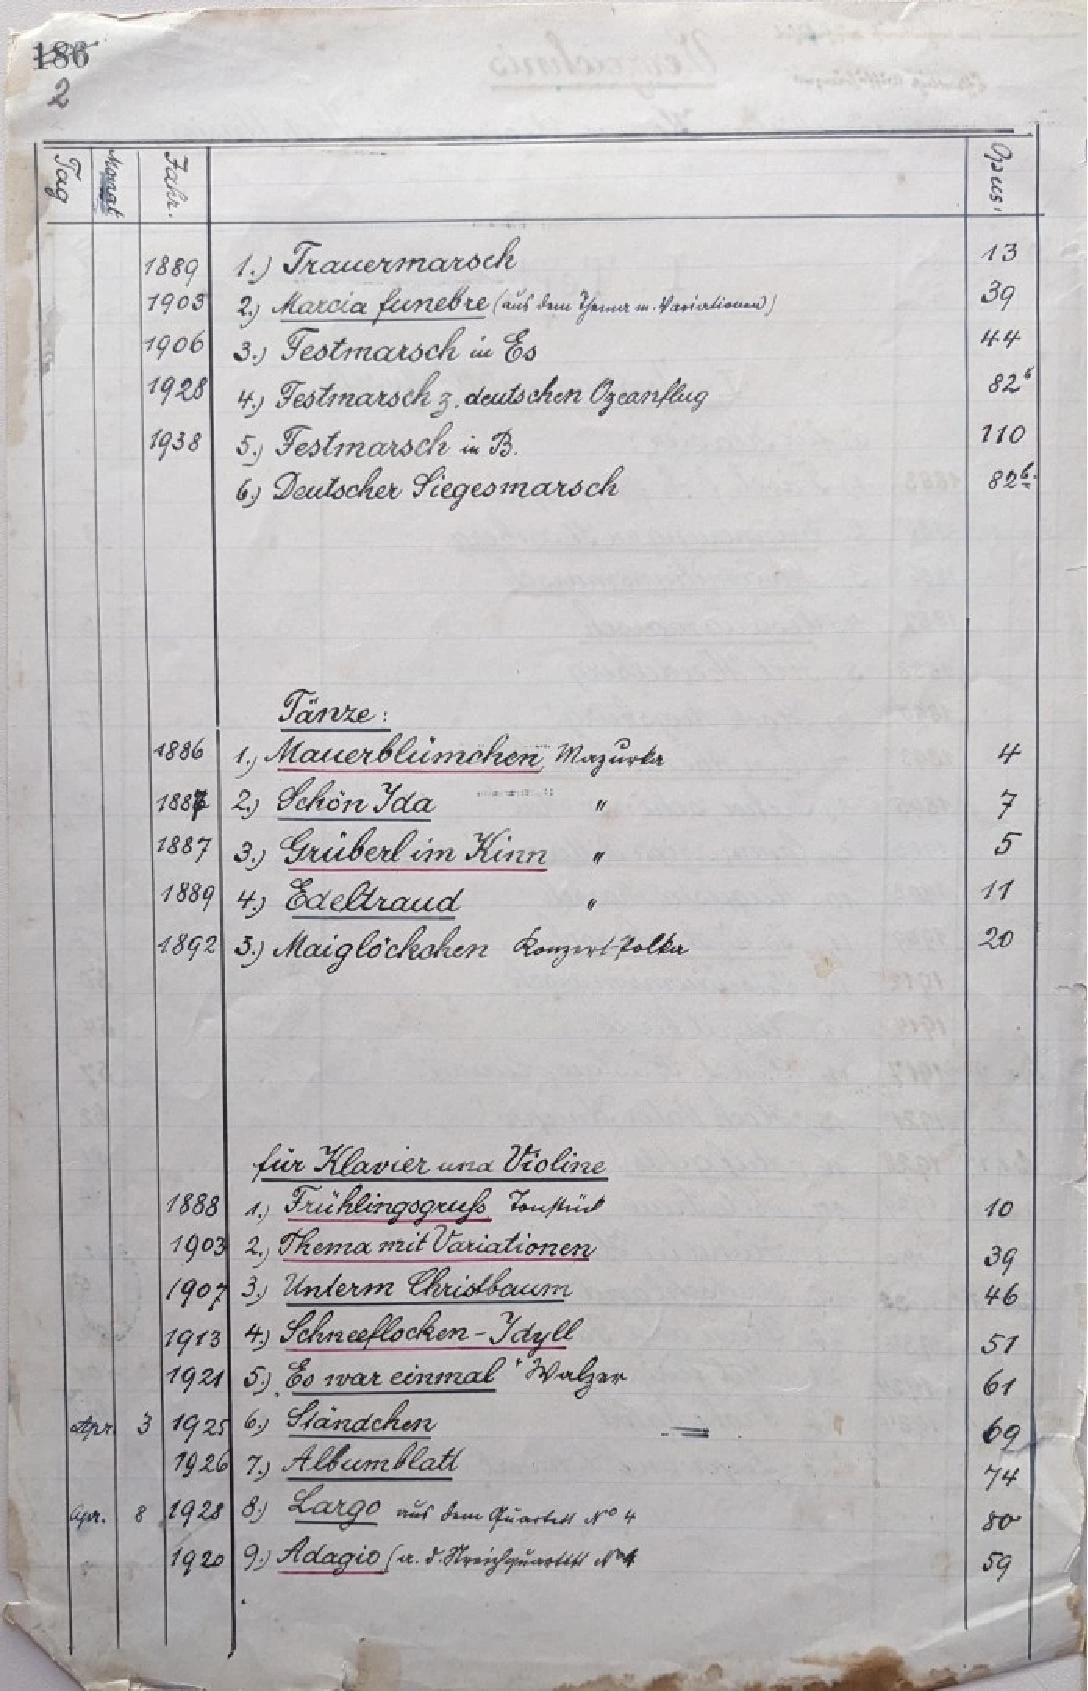 186
2
Tag Monat Jahr. Opus.
1889 1.) Trauermarsch 13
1903 2.) Marcia funebre (aus dem Thema m. Variationen) 39
1906 3.) Festmarsch in Es 44
1928 4.) Festmarsch z. deutschen Ozeanflug 82b
1938 5.) Festmarsch in B. 110
6.) Deutscher Siegesmarsch 82b.
Tänze:
1886 1.) Mauerblümchen, Mazurka 4
1887 2.) Schön Ida " 7
1887 3.) Grüberl im Kinn " 5
1889 4.) Edeltraud " 11
1892 3.) Maiglöckchen Konzert-Polka 20
für Klavier und Violine
1888 1.) Frühlingsgruß Tonstück 10
1903 2.) Thema mit Variationen 39
1907 3.) Unterm Christbaum 46
1913 4.) Schneeflocken-Idyll 51
1921 5.) "Es war einmal" Walzer 61
Apr. 3 1925 6.) Ständchen 69
1926 7.) Albumblatt 74
Apr. 8 1928 8.) Largo aus dem Quartett No 4 80
1920 9.) Adagio (a. d. Streichquartett No 1 59